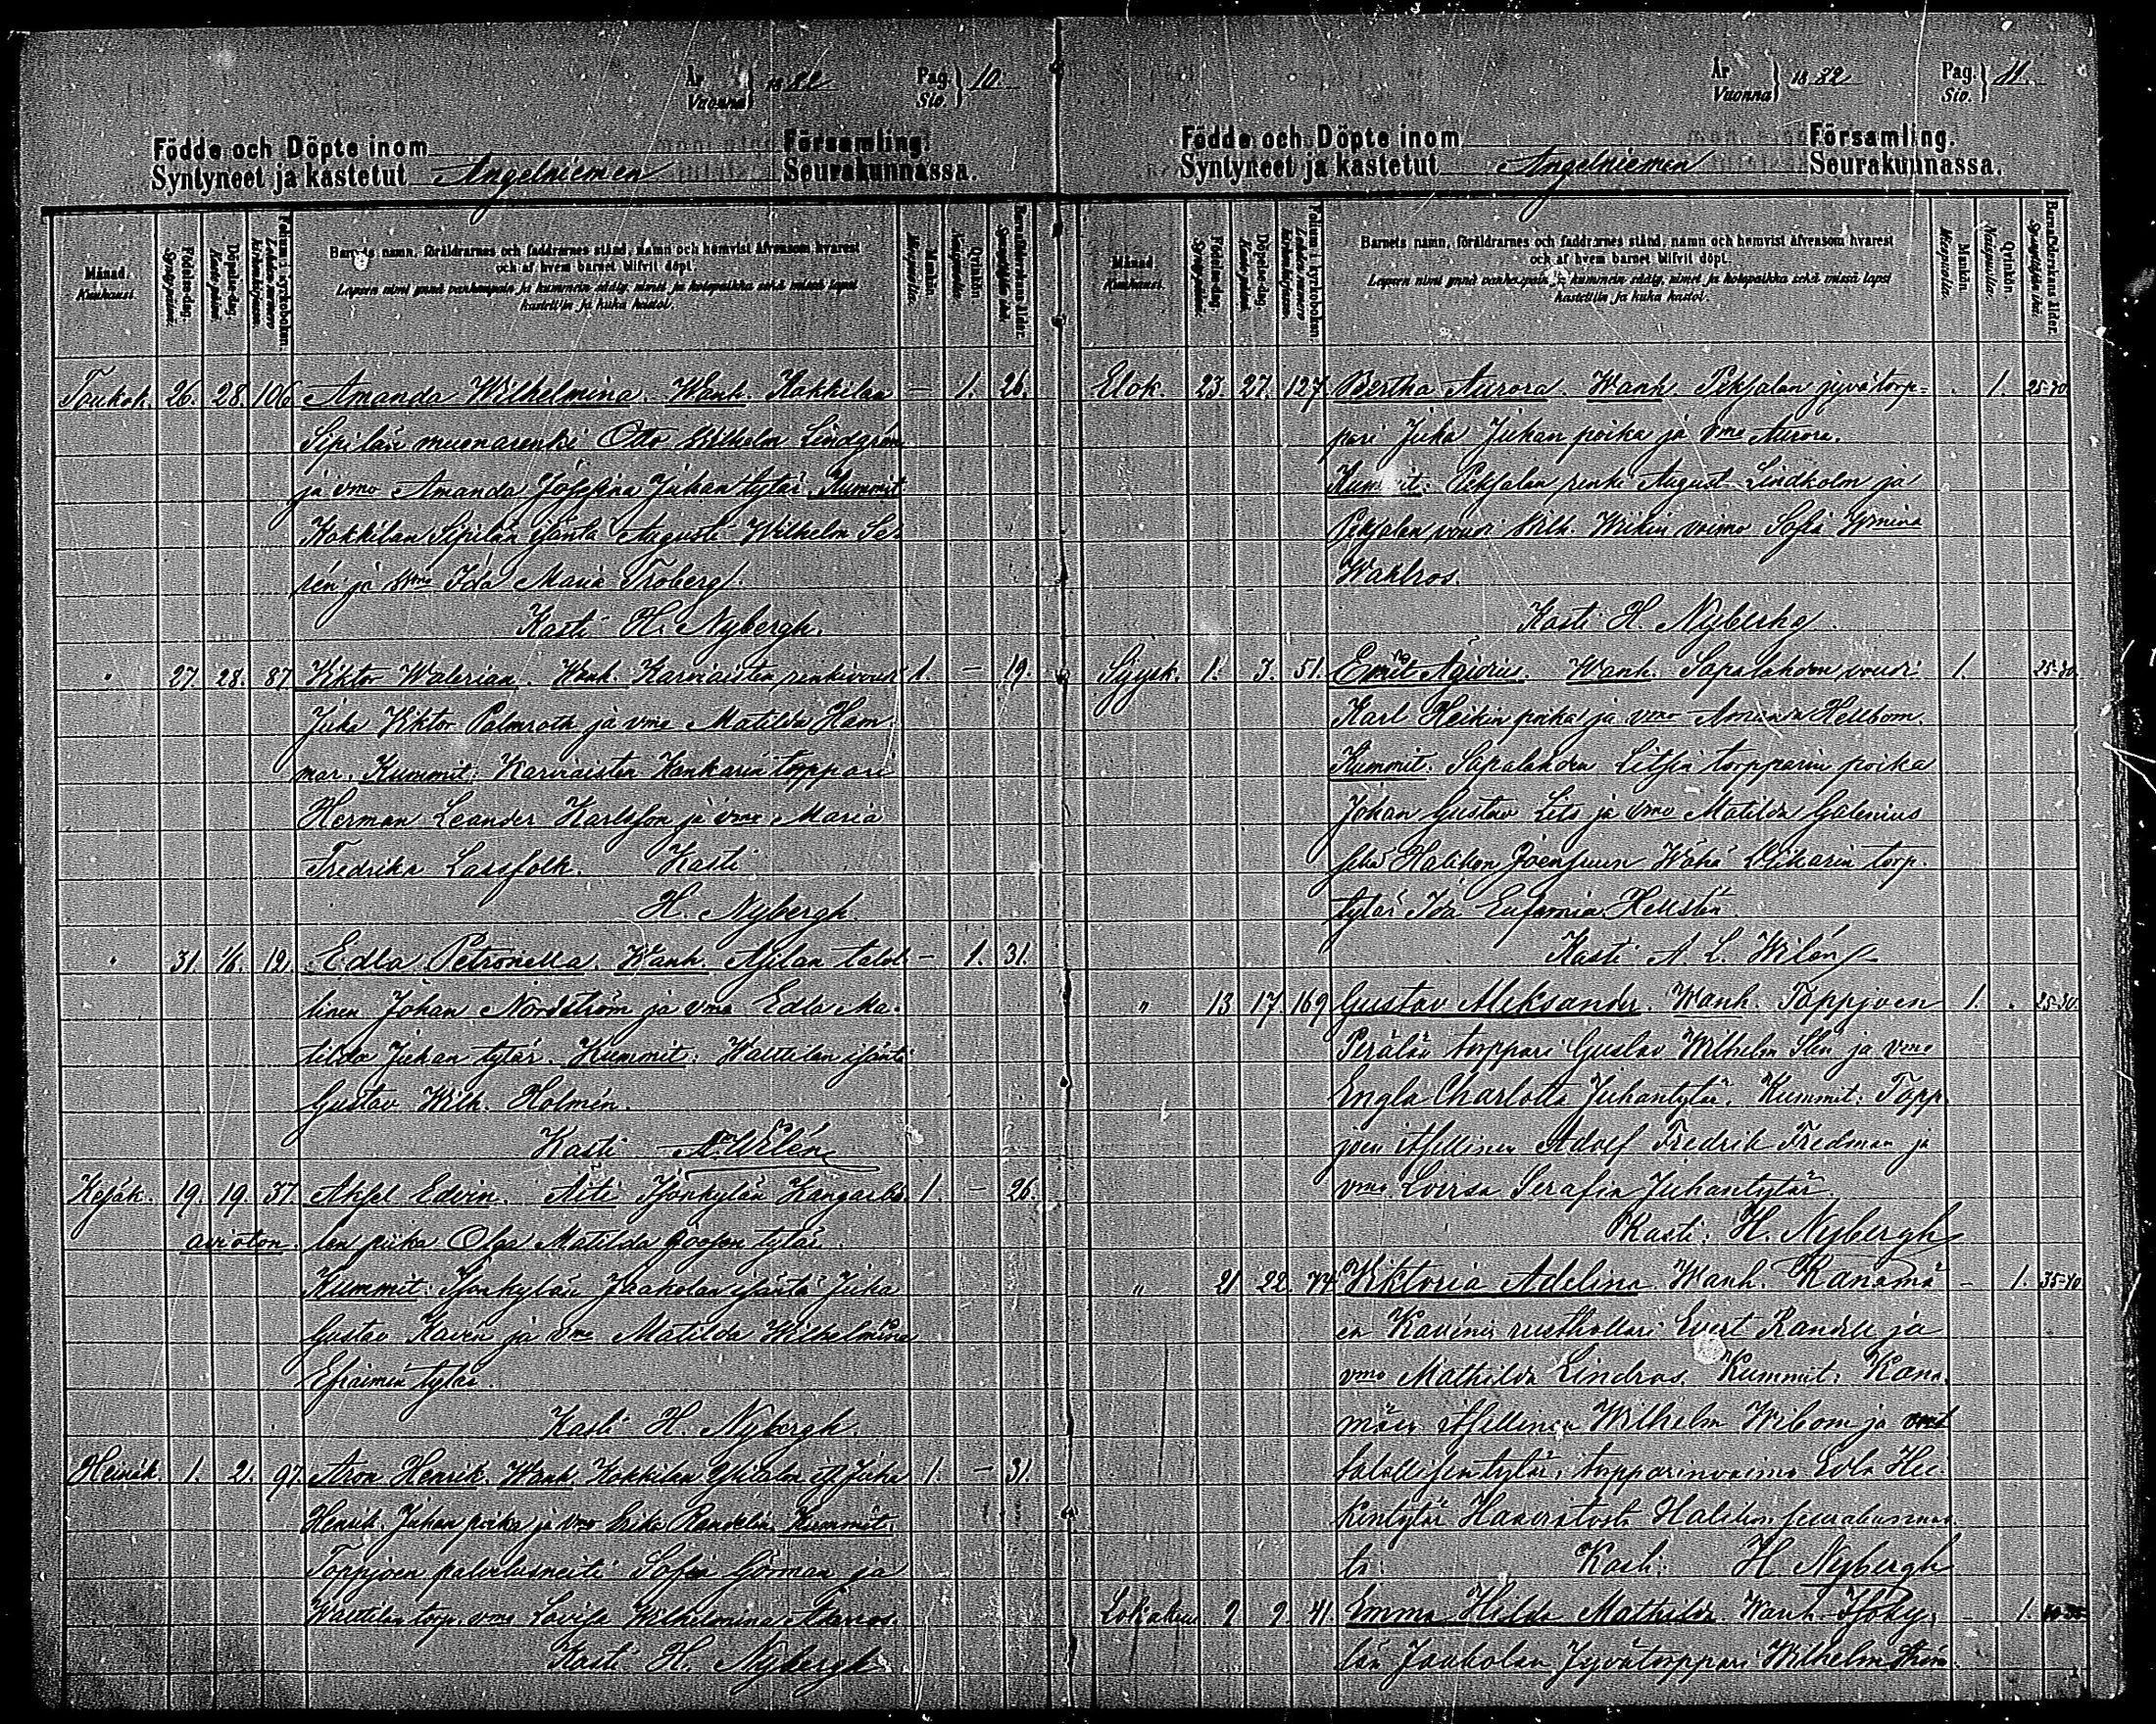 År
Vuonna } 1882 Pag.
Sio. } 10.
Födde och Döpte inom Församling.
Syntyneet ja kastetut Angelniemen Seurakunnassa.
Månad.
Kuukausi.
Födelse-dag.
Syntypäivä.
Döpelse-dag.
Kastepäivä.
Folium i kyrkoboken.
Lehden numero kirkonkirjassa.
Barnets namn, föräldrarnes och faddrarnes stånd, namn och hemvist äfvensom hvarest
och af hvem barnet blifvit döpt.
Lapsen nimi ynnä vanhempain ja kummein sääty, nimet ja kotopaikka sekä missä lapsi
kastettiin ja kuka kastoi.
Mankön.
Miespuolia.
Qvinkön.
Naispuolia.
Barnaföderskans ålder.
Synnyttäjän ikä.
Toukok. 26. 28. 106 Amanda Wilhelmina. Wanh. Kokkilan — 1. 26.
Sipilän muonarenki Otto Wilhelm Lindgrén
ja vmo Amanda Josefina Juhan tytär. Kummit
Kokkilan Sipilän isäntä Augusti Wilhelm Se-
rén ja vmo Ida Maria Troberg.
Kasti H. Nybergh.
" 27. 28. 87 Viktor Walerian. Wanh. Karviaisten renkivouti 1. — 19.
Juha Viktor Palmroth ja vmo Matilda Ham-
mar. Kummit: Karviaisten Hankarin torppari
Herman Leander Karlsson ja vmo Maria
Fredrika Lassfolk. Kasti
H. Nybergh.
" 31. 1/6. 12. Edla Petronella. Wanh. Ajilan talol- — 1. 31.
linen Johan Nordström ja vmo Edla Ma-
tilda Juhan tytär. Kummit: Walttilan isäntä
Gustav Wilh. Holmén.
Kasti A. Wilén
Kesäk. 19. 19. 37. Aksel Edvin. Äiti Isonkylän 1. — 26.
avioton. piika Olga Matilda Joosen tytär.
Kummit: Isonkylän Jaakolan isäntä Juha
Gustav Kavén ja vmo Matilda Wilhelmina
Efraimin tytär.
Kasti H. Nybergh.
Heinäk. 1. 2. 97. Aron Henrik. Wanh. Kokkilan Juha 1. — 31.
Henrik Juhan poika ja vmo Erika Randelin Kummit:
Toppjoen palvelusneiti Sofia Görman ja
Walttilan torp. vmo Lovisa Wilhelmina
Kasti H. Nybergh
År
Vuonna } 1882 Pag.
Sio. } 11.
Födde och Döpte inom Församling.
Syntyneet ja kastetut Angelniemen Seurakunnassa.
Månad.
Kuukausi.
Födelse-dag.
Syntypäivä.
Döpelse-dag.
Kastepäivä.
Folium i kyrkoboken.
Lehden numero kirkonkirjassa.
Barnets namn, föräldrarnes och faddrarnes stånd, namn och hemvist äfvensom hvarest
och af hvem barnet blifvit döpt.
Lapsen nimi ynnä vanhempain ja kummein sääty, nimet ja kotopaikka sekä missä lapsi
kastettiin ja kuka kastoi.
Mankön.
Miespuolia.
Qvinkön.
Naispuolia.
Barnaföderskans ålder.
Synnyttäjän ikä.
Elok. 23. 27. 127. Bertha Aurora. Wanh. Peksalan jyvätorp- . 1. 25-30
pari Juha Juhan poika ja vmo Aurora.
Kummit: Peksalan renki August Lindholm ja
Peksalan vouti Wilh. Wikin vaimo Sofia
Wahlros.
Kasti H. Nybergh.
Syysk. 1. 3. 51. Emil Wanh. Sapalahden vouti 1. 25-30.
Karl Heikin poika ja vmo Amanda Hellbom.
Kummit. Sapalahden Litsin torpparin poika
Johan Gustav Lits ja vmo Matilda Galenius
sekä Halikon Joensuun Wähä torp.
tytär Ida Eufemia Hellstén.
Kasti A. L. Wilén
" 13 17. 169 Gustav Aleksander. Wanh. Toppjoen 1. . 25-30.
Perälän torppari Gustav Wilhelm Slén ja vmo
Engla Charlotta Juhantytär. Kummit. Topp-
joen itsellinen Adolf Fredrik Fredman ja
vmo Loviisa Serafia Juhantytär.
Kasti: H. Nybergh
" 21 22. 74 Viktoria Adelina. Wanh. Kanamä- — 1. 35-40
en Kavénin rusthollari Evert Randell ja
vmo Mathilda Lindros. Kummit: Kana-
mäen itsellinen Wilhelm Wibom ja
talollisen tytär, torpparinvaimo Edla Hei-
kintytär Halikon seurakunnas-
ta. Kasti: H Nybergh
Lokakuu. 2 2. 41. Emma Hilda Mathilda. Wanh. Isoky- — 1.
län Jaakolan Jyvätorppari Wilhelm